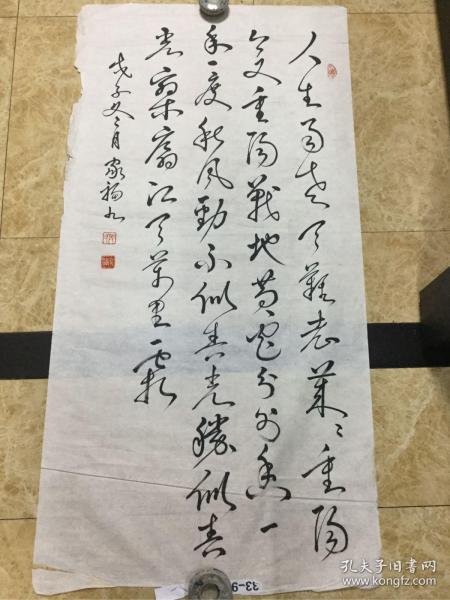 人生易老天難老歲〻重陽
今又重陽戰地黄花分外香一
年一度秋風勁不似春光勝似春
光寥廓江天萬里霜
戊子冬月家福书
33-9
孔夫子旧书网
www.kongfz.com